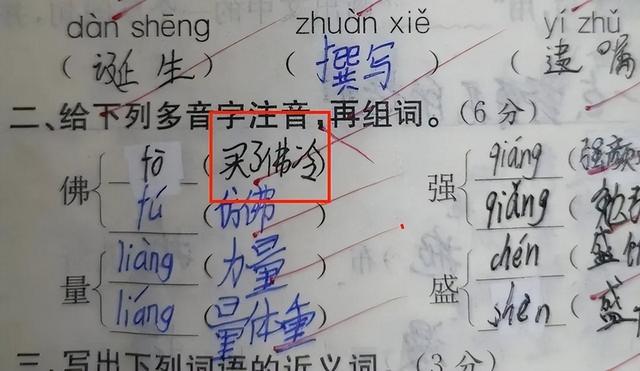 dàn shēng zhuàn xiě yí zhǔ
(诞生) (撰写) (遗嘱
二、给下列多音字注音,再组词。(6分)
佛 fó (买了佛冷) 强 qiáng (强颜
fú (仿佛) qiǎng (
量 liàng (力量) 盛 chén (盛
liáng (量体重) shèn (盛
三、写出下列词语的近义词。(3分)